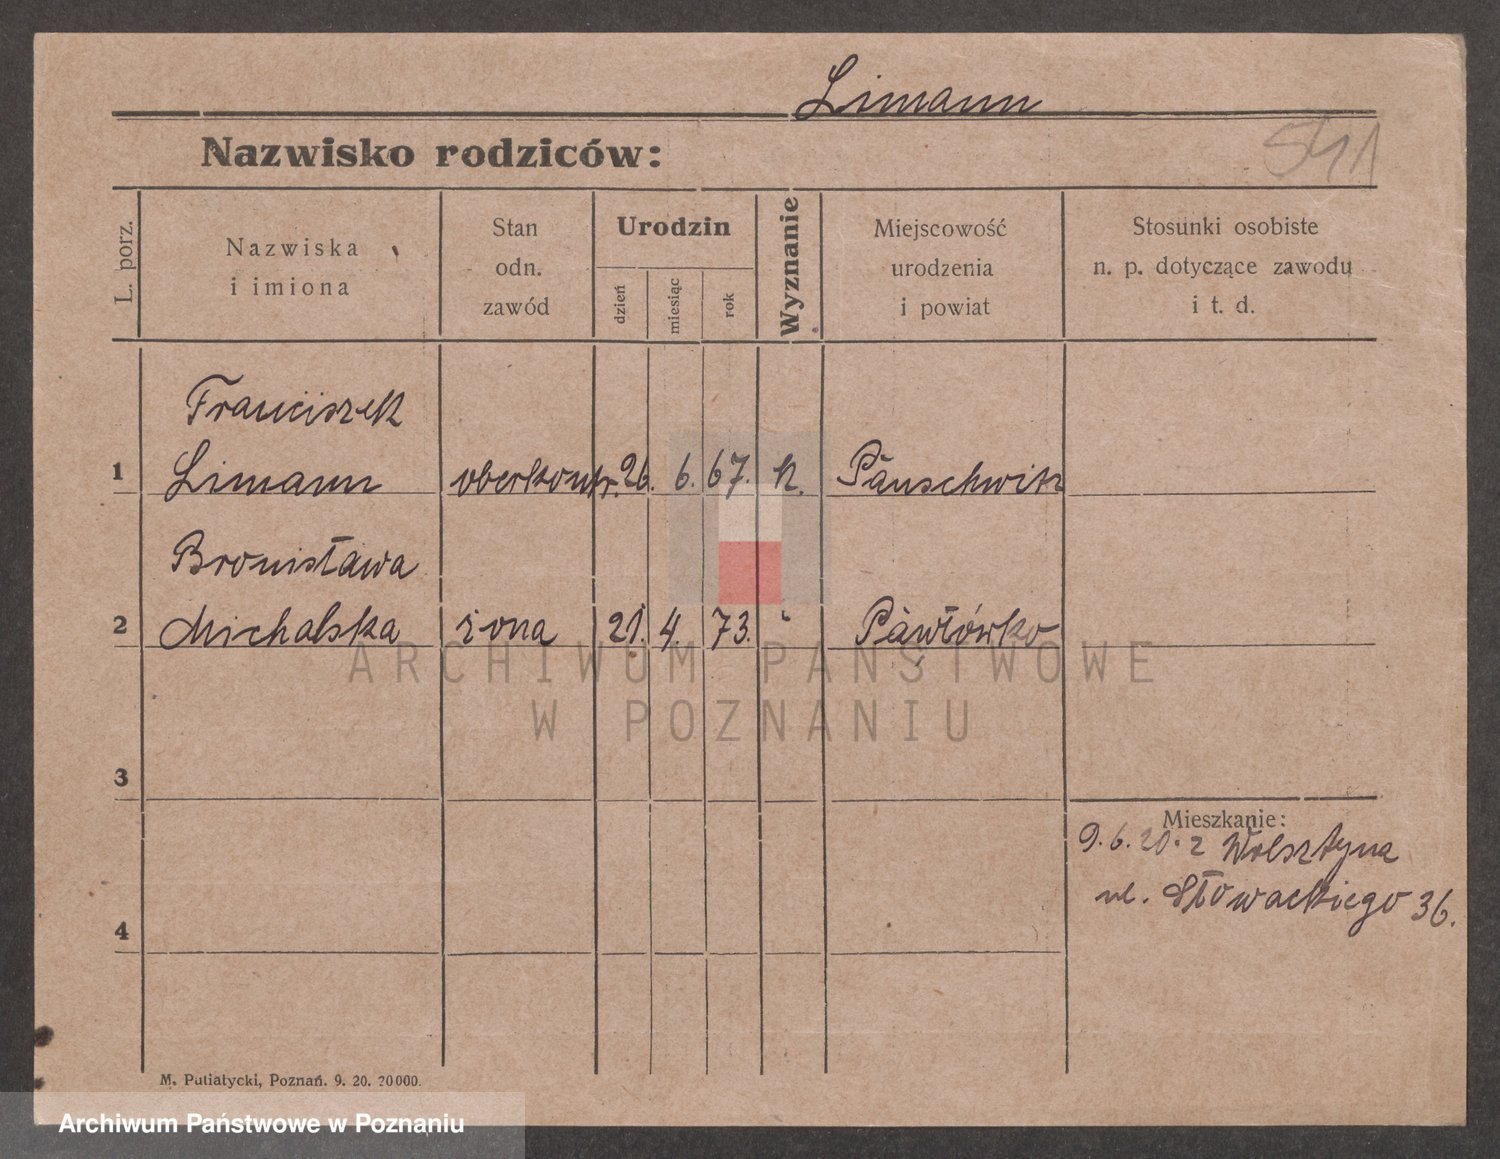 Limann
541
Nazwisko rodziców:
L. porz.
Nazwiska
i imiona
Stan
odn.
zawód
Urodzin
dzień
miesiąc
rok
Wyznanie
Miejscowość
urodzenia
i powiat
Stosunki osobiste
n. p. dotyczące zawodu
i t. d.
Franciszek
1 Limann oberkontr. 26. 6. 67. k. Pauschwitz
Bronisława
2 Michalska żona 21. 4. 73. " Pawłówko
ARCHIWUM PAŃSTWOWE
W POZNANIU
3
Mieszkanie:
9.6.20. z Wolsztyna
ul. Słowackiego 36.
4
M. Putiatycki, Poznań. 9. 20. 20000.
Archiwum Państwowe w Poznaniu